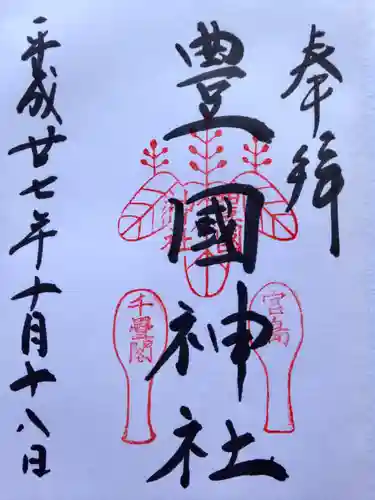 奉拝
豊國神社
平成廿七年十月十八日
宮島
千畳閣